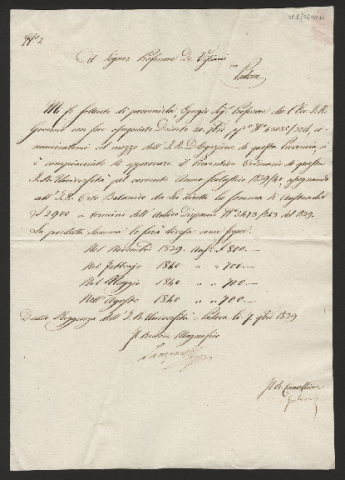 N° 2
Al Signor Professore De Visiani
Padova
Mi fo sollecito di prevenirla Egregio Sig. Professore che l'Ecc. I. R.
Governo con suo ossequiato Decreto
comunicatomi col mezzo dell'I. R. Delegazione di questa Provincia, si
è compiaciuto di approvare il Preventivo Ordinario di questa
I. R. Università pel corrente Anno Scolastico 1839/40 assegnando
all'I. R. Orto Botanico da Lei diretto la somma di Austriache
£ 2900 a termini dell' Dispaccio del 1839.
La predetta Somma le sarà divisa come segue:
Nel Novembre 1839. Aus. £ 800. —
Nel Febbrajo 1840 " " 700. —
Nel Maggio 1840 " " 700. —
Nell'Agosto 1840 " " 700. —
Dalla Reggenza dell'I. R. Università - Padova li 7 9bre 1839
Il Rettore Magnifico
Il R. Cancelliere